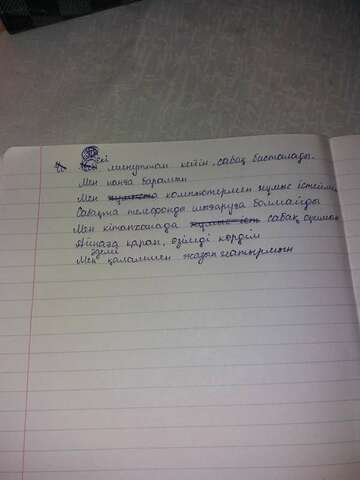 Екі минуттан кейін, сабақ басталады.
Мен нонға барамын
Мен жұмыста компьютермен жұмыс істеймін
Сабақта телефонды шығаруға болмайды
Мен кітапханада жұмыс іст сабақ оқимын
Айнаға қарап, өзімді көрдім
әдемі
Мен қаламмен жазып жатырмын